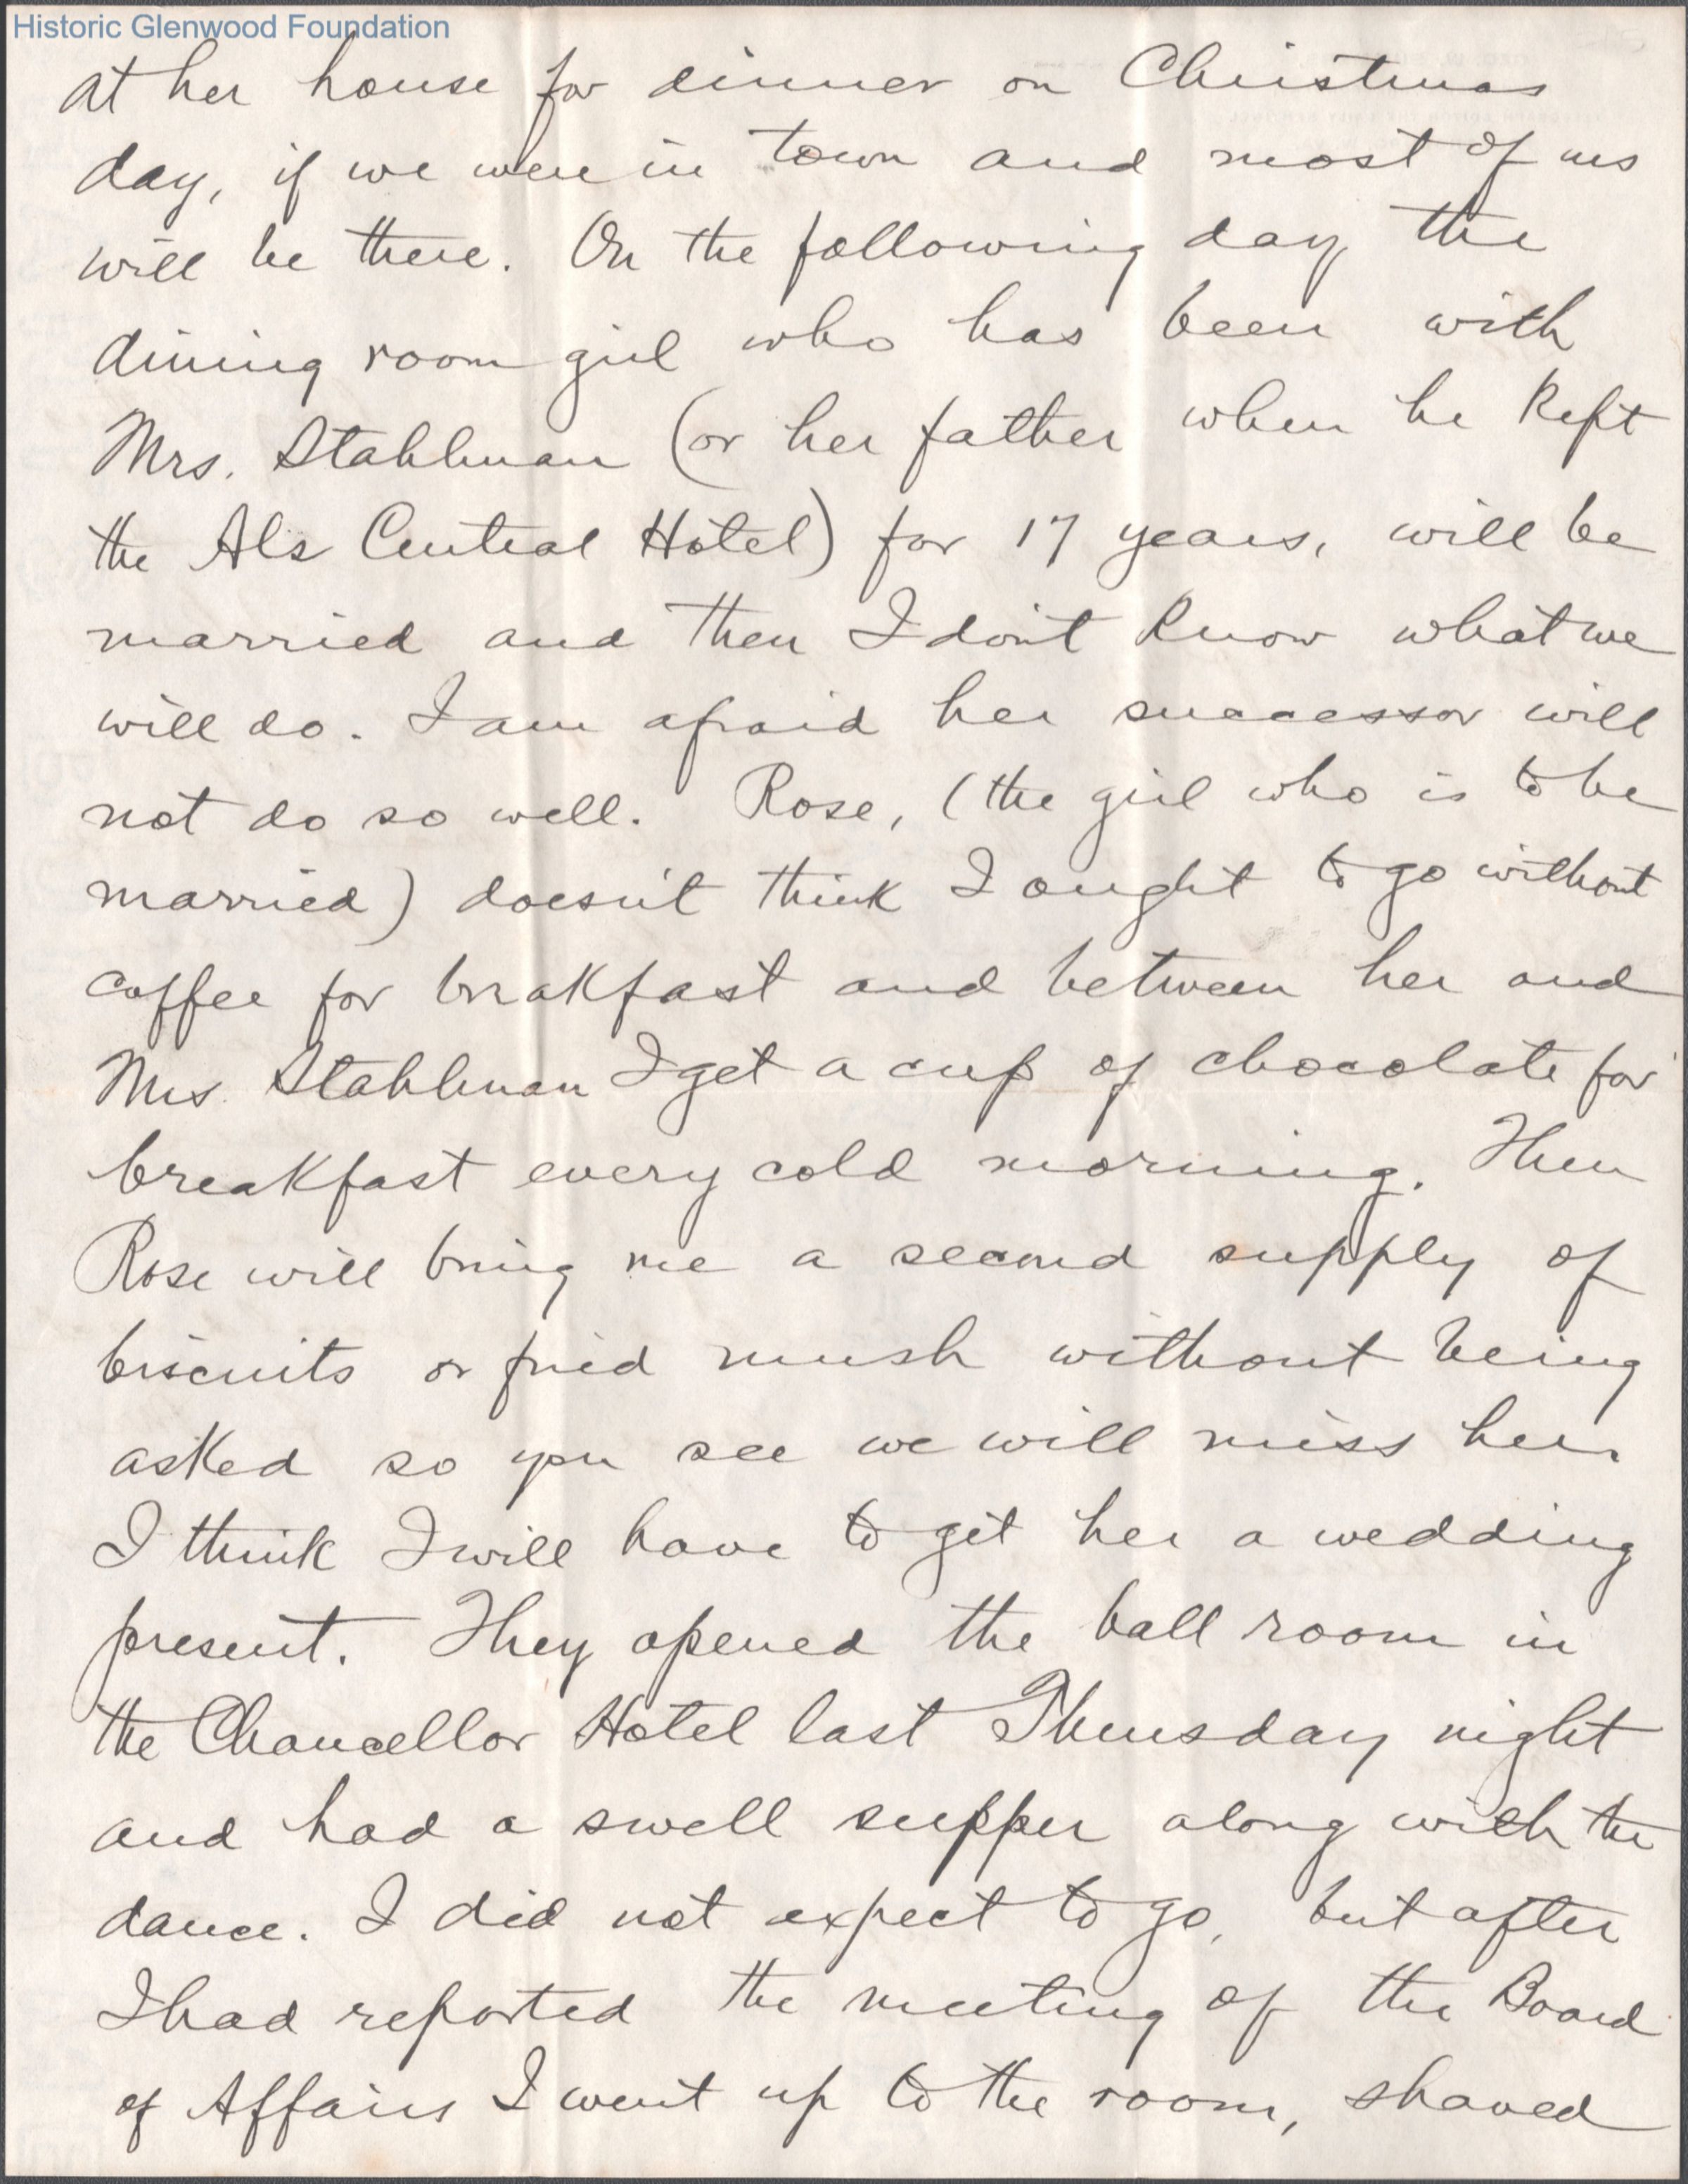 Historic Glenwood Foundation
at her house for dinner on Christmas
day, if we were in town and most of us
will be there. On the following day the
dining room girl who has been with
Mrs. Stahlman (or her father when he kept
the Central Hotel) for 17 years, will be
married and then I don't know what we
will do. I am afraid her successor will
not do so well. Rose, (the girl who is to be
married) doesn't think I ought to go without
coffee for brakfast and between her and
Mrs. Stahlman I get a cup of chocolate for
breakfast every cold morning. Then
Rose will bring me a second supply of
biscuits or fried mush without being
asked so you see we will miss her.
I think I will have to get her a wedding
present. They opened the ball room in
the Chancellor Hotel last Thursday night
and had a swell supper along with the
dance. I did not expect to go, but after
I had reported the meeting of the Board
of Affairs I went up to the room, shaved